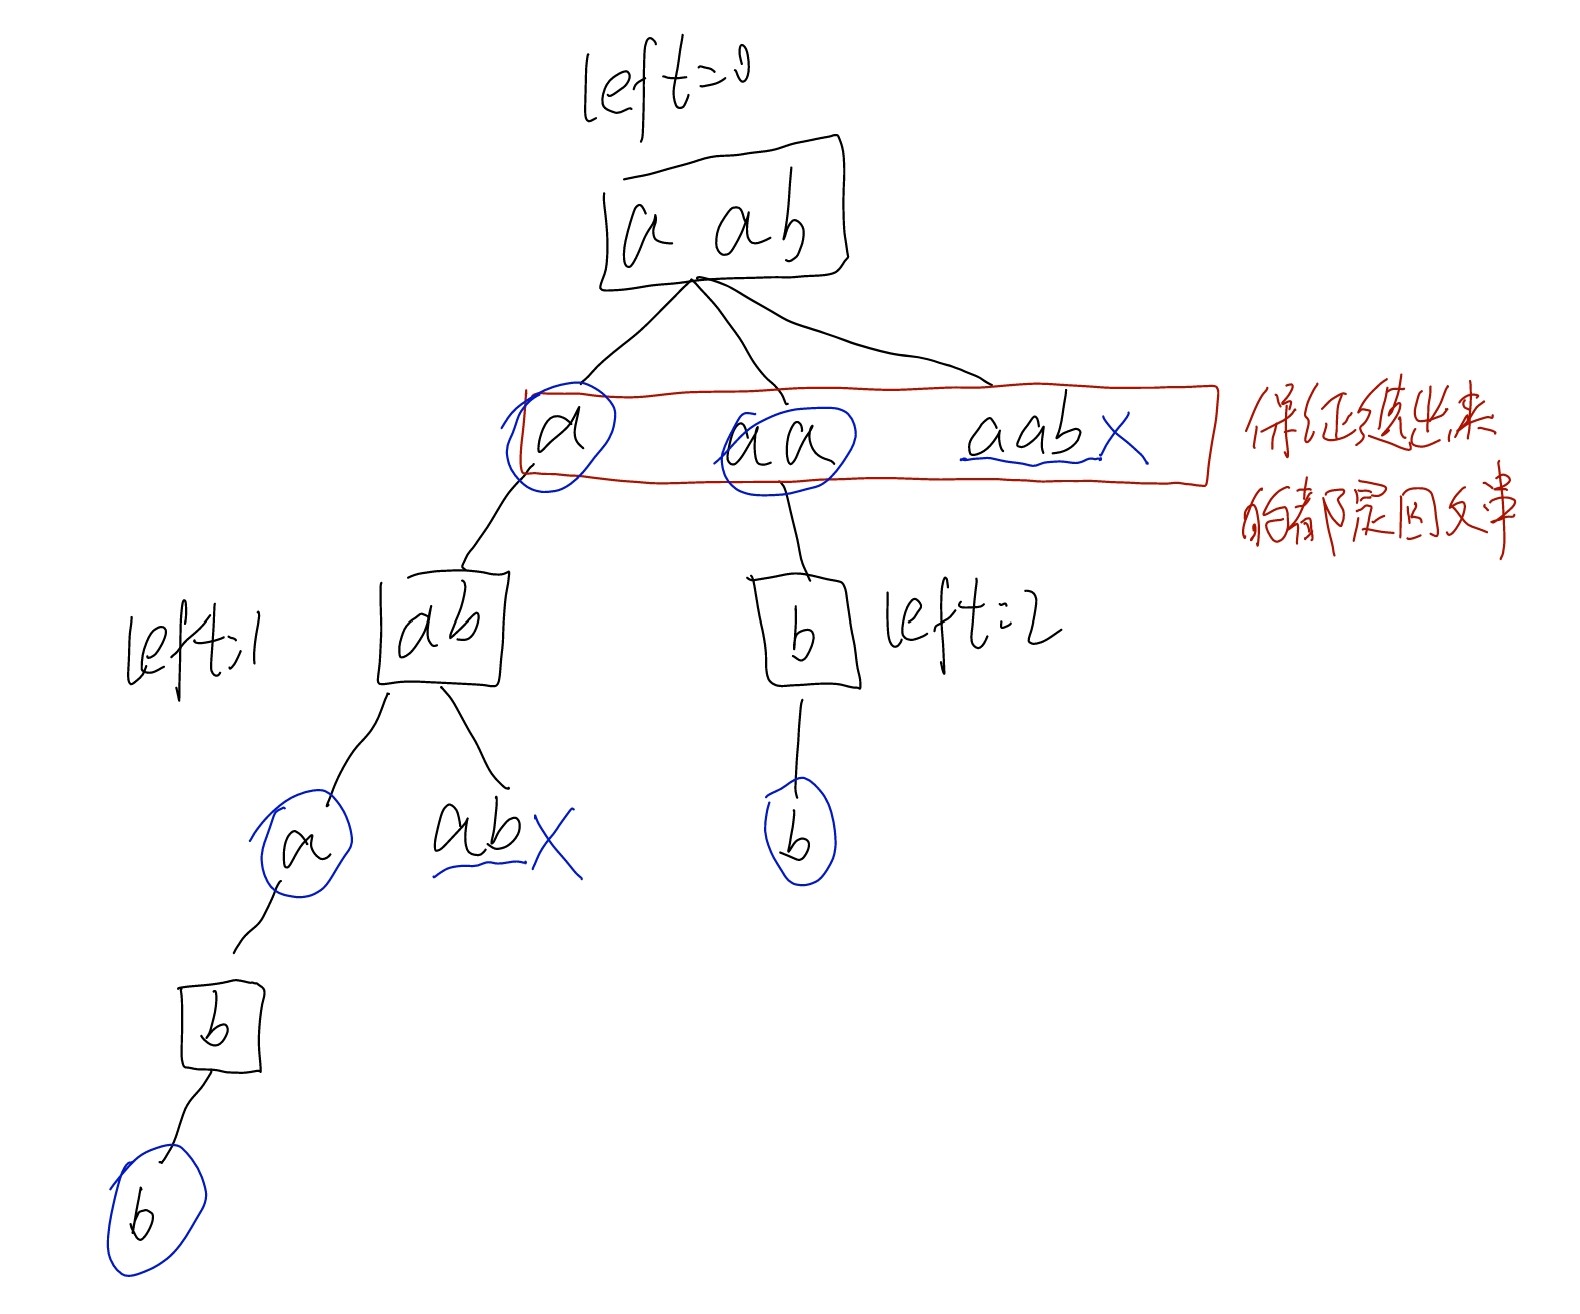 left=0
a ab
a
aa
aabX
保证选出来
的都是回文串
left=1
ab
b
left=2
a
abX
b
b
b